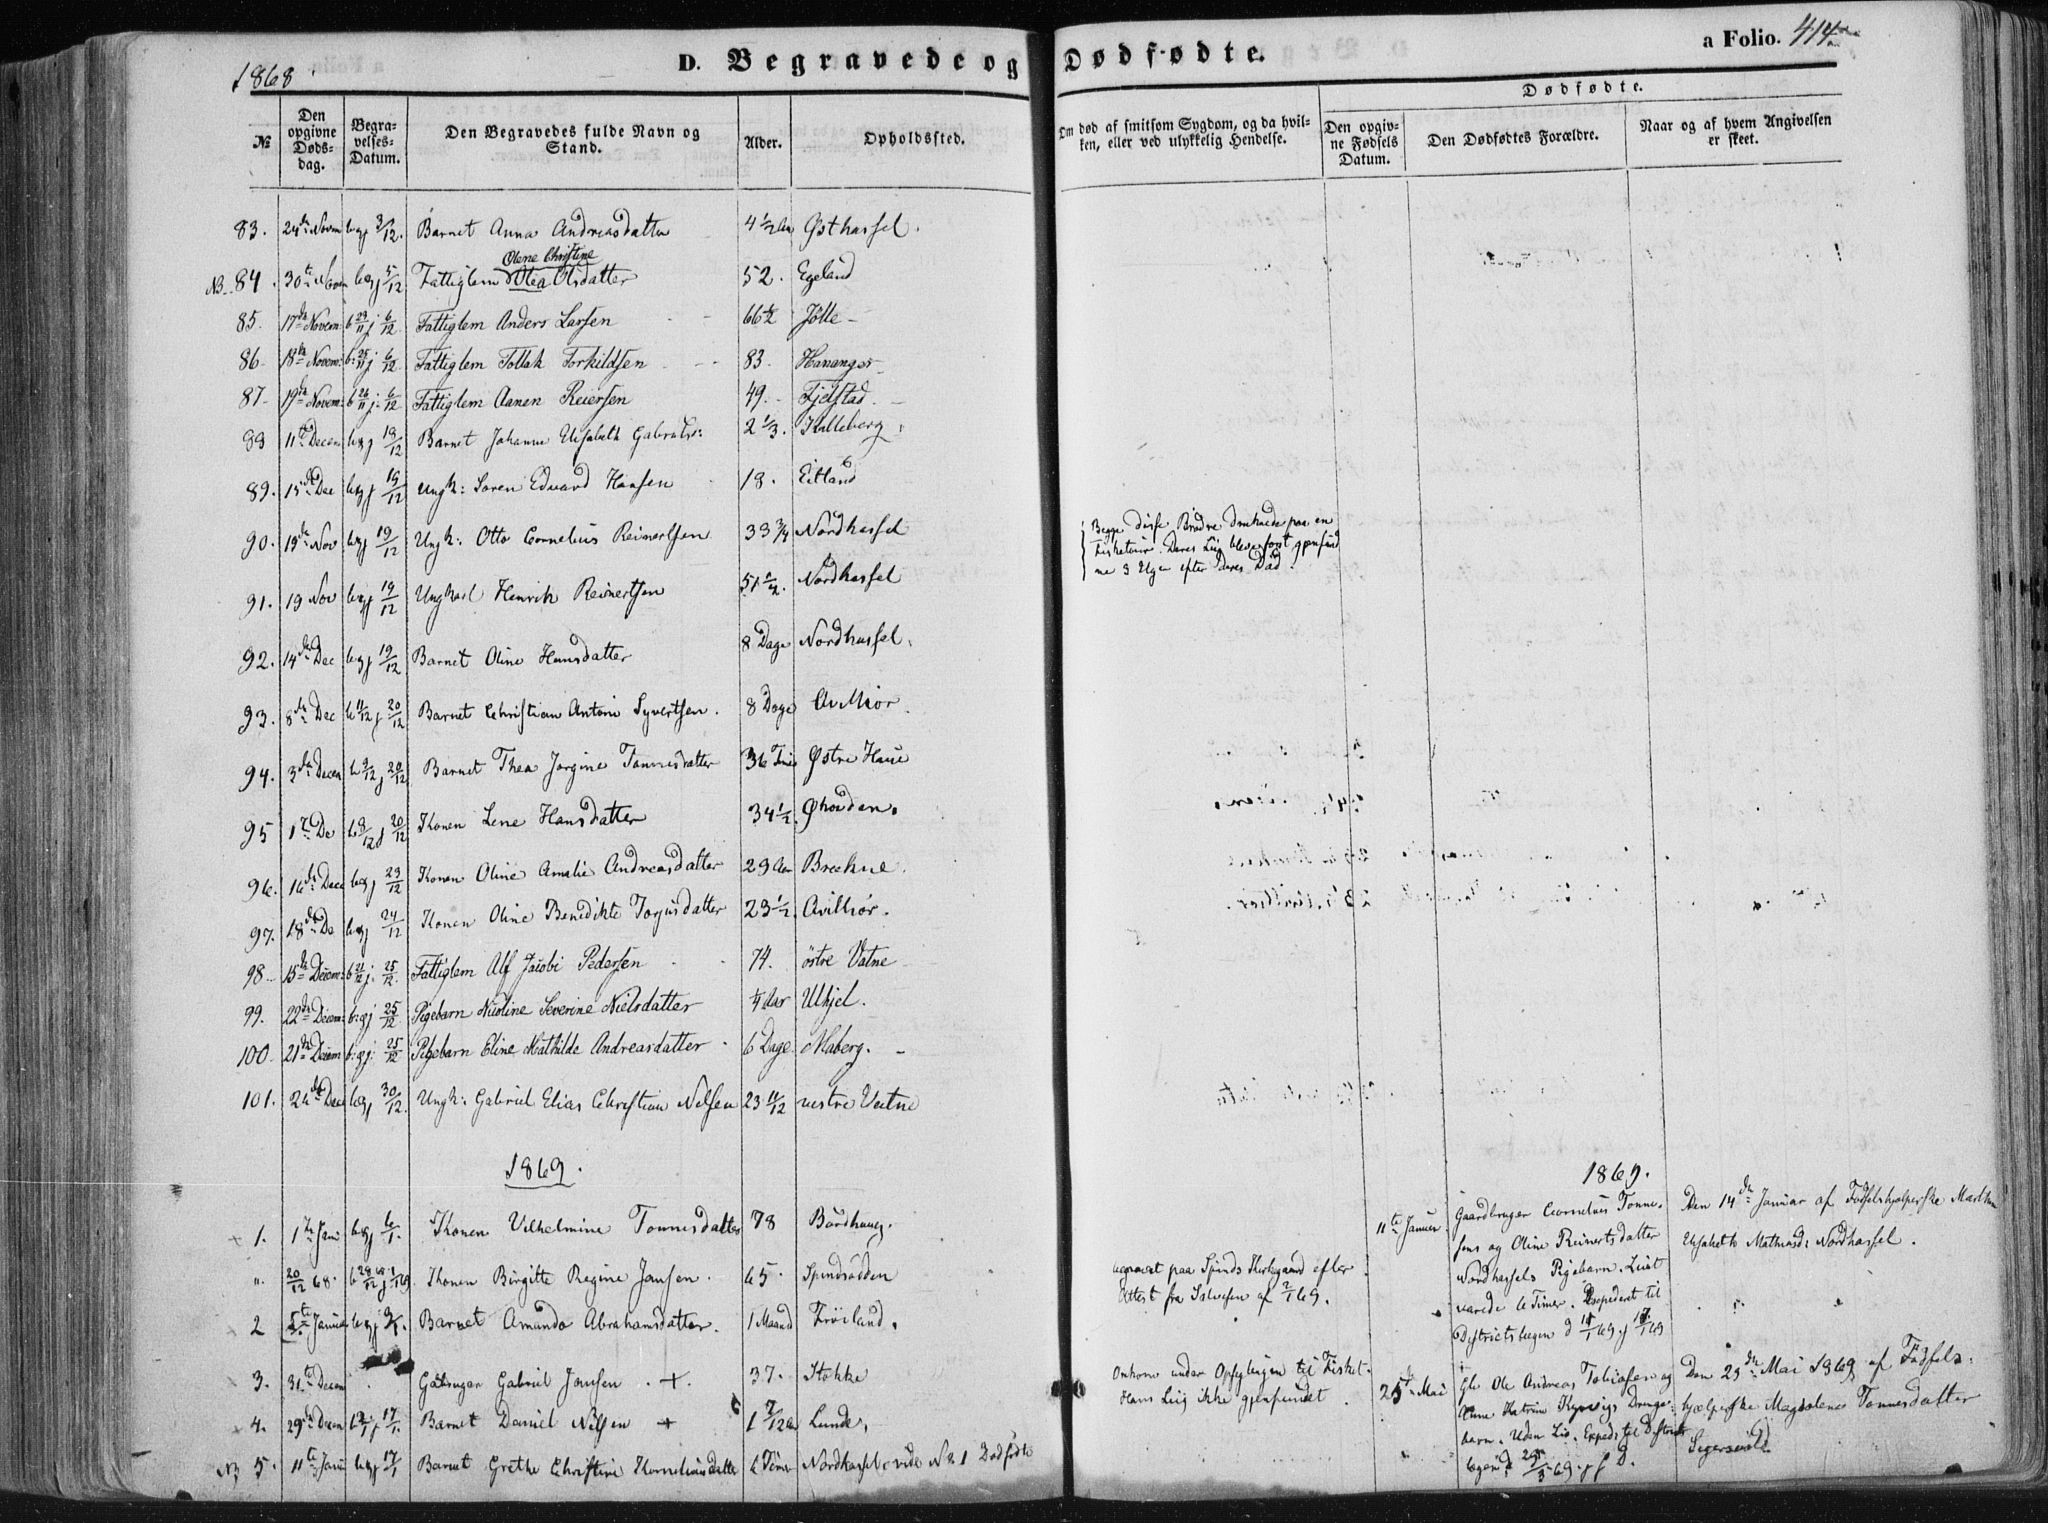 1868.
D. Begravede og Dødfødte.
a Folio. 414
№
Den opgivne Døds-dag.
Begra-velses-Datum.
Den Begravedes fulde Navn og Stand.
Alder.
Opholdssted.
Om død af smitsom Sygdom, og da hvil-ken, eller ved ulykkelig Hendelse.
Dødfødte.
Den opgiv-ne Fødsels Datum.
Den Dødfødtes Forældre.
Naar og af hvem Angivelsen er skeet.
83. 24de Novm begj 3/12. Barnet Anna Andreasdatter 4 1/2 Aar Østhassel.
Olene Christine
NB. 84. 30te Novm begj 5/12 Fattiglem Olea Olsdatter 52. Egeland
85. 17de Novem: b 23/11 j 6/12. Fattiglem Anders Larsen 66 1/2 Jølle
86. 18de Novem: b: 25/11 j: 6/12 Fattiglem Tollak Torkildsen 83. Hananger
87. 19de Novem: b 26/11 j: 6/12 Fattiglem Aanen Reiersen 49. Fjelstad
88 11te Decem begj 18/12 Barnet Johanne Elisabeth Gabriels: 2 1/3. Kalleberg
89. 15de Dec begj 19/12 Ungk: Soren Edvard Hansen 18. Eitland
90. 19de Nov begj 19/12 Ungk: Otto Cornelius Reinertsen 33 3/4 Nordhassel
{ Begge disse Brødre druknede paa en
Fisketour. Deres Liig bleve først gjenfund
ne 3 Uger efter deres Død.
91. 19 Nov begj 19/12 Ungkarl Henrik Reinertsen 51 1/2. Nordhassel
92. 14de Dec begj 19/12 Barnet Oline Hansdatter 8 Dage Nordhassel.
93. 8de Dec b 11/12 j 20/12 Barnet Christian Antoni Syvertsen. 8 Dage
94. 3de Decem b 9/12 j 20/12 Barnet Thea Jorgine Tonnesdatter 36 Timer Østre Haue
95 1te De b 9/12 j 20/12 Konen Lene Hansdatter 34 1/2.
96. 16de Dece begj 23/12 Konen Oline Amalie Andreasdatter 29 Aar Brekne.
97. 18de De begj 24/12 Konen Oline Benedikte Torjusdatter 23 1/2.
98 15de Decem: b 21/12 j: 25/12. Fattiglem Alf Jacobi Pedersen 74. østre Vatne
99. 22de Decem: b: gj 25/12 Pigebarn Nicoline Severine Nielsdatter 1/4 Aar Ulhjel.
100. 21de Decem b: gj: 25/12 Pigebarn Eline Mathilde Andreasdatter 6 Dage Maberg.
101. 24de Dec begj 30/12. Ungk: Gabriel Elias Christian Nilsen 23 11/12 vestre Vatne
1869.
1869.
+ 1. 1te Janu begj 6/1. Konen Vilhelmine Tonnesdatter 78
11te Januar. Gaardbruger Cornelius Tonne-
sens og Oline Reinertsdatter
Nordhassels Pigebarn. Livet
varede 6 Timer. Expederet til
Districtslægen d
Den 14de Januar af Fødselshjelperske Marthe
Elisabeth Mathiasd: Nordhassel.
". 20/12 68. Konen Birgitte Regine Jansen. 65. Spindsodden
begravet paa Spinds Kirkegaard efter
Attest fra Salvesen af 2/1 69.
2 5te Januar begj 9/1. Barnet Amanda Abrahamsdatter. 1 Maaned Frøiland.
3. 31te Decem Gbruger Gabriel Jansen. + 37. Stokke
Omkom under til Fisket.
Hans Liig ikke gjenfundet.
25de Mai Gbr Ole Andreas Tobiasen og
Drenge-
barn. Uden Liv. Exped: til Districts
lægen d 29/5 69.
Den 29de Mai 1869 af Fødsels-
hjelperske Magdalene Tonnesdatter
4. 29de Decem 17/1. Barnet Daniel Nilsen + 1 7/12 Aar Lunde.
NB 5. 11te Janu begj 17/1 Barnet Grethe Christine Korneliusdatter 6 Timer Nordhassel. vide No 1 Dødfødte